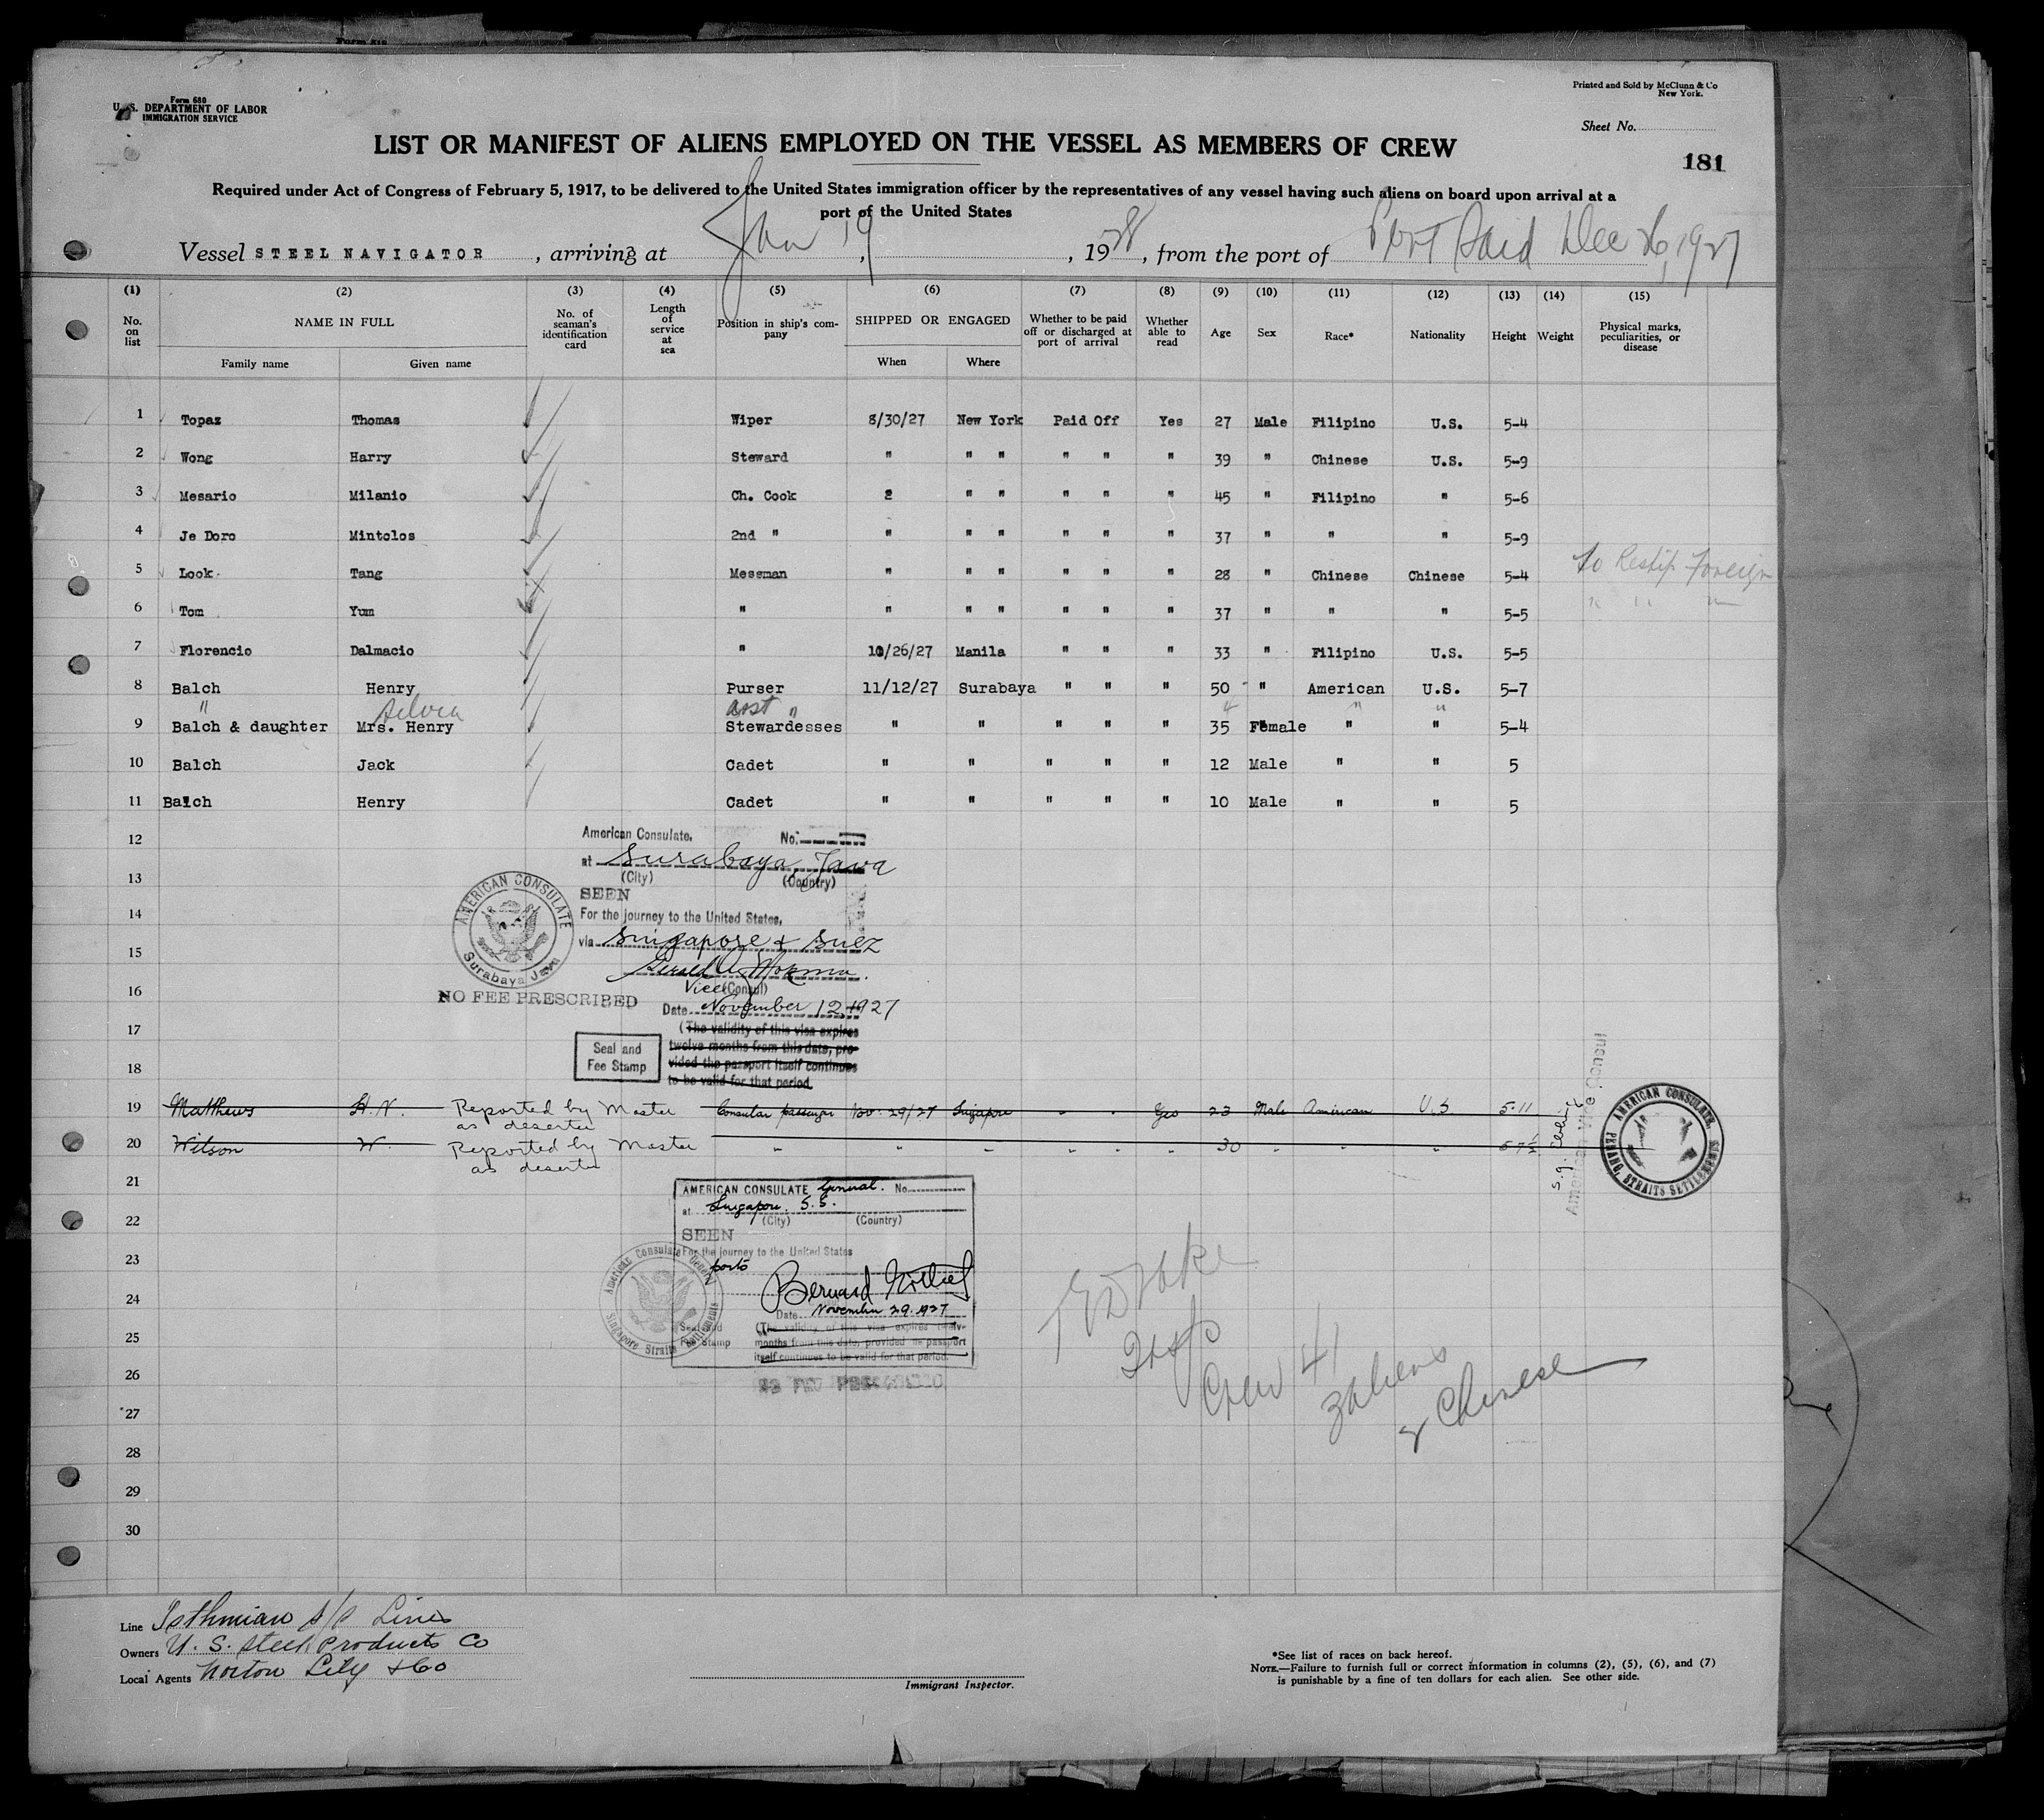 Form 680
U. S. DEPARTMENT OF LABOR
IMMIGRATION SERVICE
Printed and Sold by McClunn & Co
New York.
Sheet No.
LIST OR MANIFEST OF ALIENS EMPLOYED ON THE VESSEL AS MEMBERS OF CREW
181
Required under Act of Congress of February 5, 1917, to be delivered to the United States immigration officer by the representatives of any vessel having such aliens on board upon arrival at a
port of the United States
Vessel STEEL NAVIGATOR, arriving at Jan 19, 1928, from the port of Port Said Dec 26, 1927
(1) (2) (3) (4) (5) (6) (7) (8) (9) (10) (11) (12) (13) (14) (15)
No. on list NAME IN FULL Family name Given name No. of seaman's identification card Length of service at sea Position in ship's company SHIPPED OR ENGAGED When Where Whether to be paid off or discharged at port of arrival Whether able to read Age Sex Race* Nationality Height Weight Physical marks, peculiarities, or disease
1 Topaz Thomas Wiper 8/30/27 New York Paid Off Yes 27 Male Filipino U.S. 5-4
2 Wong Harry Steward " " " " " " 39 " Chinese U.S. 5-9
3 Mesario Milanio Ch. Cook 2 " " " " " 45 " Filipino " 5-6
4 Je Doro Mintolos 2nd " " " " " " " 37 " " " 5-9
5 Look Tang Messman " " " " " " 28 " Chinese Chinese 5-4 To Reship Foreign
6 Tom Yum " " " " " " " 37 " " " 5-5 " " "
7 Florencio Dalmacio " 10/26/27 Manila " " " 33 " Filipino U.S. 5-5
8 Balch Henry Purser 11/12/27 Surabaya " " " 50 " American U.S. 5-7
" Silvia asst " 4 " "
9 Balch & daughter Mrs. Henry Stewardesses " " " " " 35 Female " " 5-4
10 Balch Jack Cadet " " " " " 12 Male " " 5
11 Balch Henry Cadet " " " " " 10 Male " " 5
12
American Consulate, No.
at Surabaya, Java
13
(City) (Country)
SEEN
14
For the journey to the United States,
via Singapore & Suez
15
AMERICAN CONSULATE
Surabaya Java
Vice (Consul)
16
NO FEE PRESCRIBED
Date November 12, 1927
17
(The validity of this visa expires
twelve months from this date, pro-
vided the passport itself continues
to be valid for that period.
Seal and
Fee Stamp
18
19 Matthews H. N. Reported by Master as deserter Consular passenger Nov. 29/27 Singapore " " Yes 23 Male American U.S 5-11
20 Wilson W. Reported by Master as deserter " " " " " " 30 " " " 5 7½
American Vice Consul
AMERICAN CONSULATE,
PENANG, STRAITS SETTLEMENTS
21
AMERICAN CONSULATE General. No.
at Singapore. S.S.
22
(City) (Country)
SEEN
23
For the journey to the United States
ports
American Consulate General
Singapore Straits Settlements
24
Bernard Gotlieb
Date November 29. 1927
25
Seal and
Fee Stamp
(The validity of this visa expires twelve
months from this date, provided the passport
itself continues to be valid for that period.
26
27
28
29
30
Crew 41
2 aliens
2 Chinese
Line Isthmian S/S Lines
Owners U. S. Steel Products Co
Local Agents Norton Lilly & Co
Immigrant Inspector.
*See list of races on back hereof.
NOTE.—Failure to furnish full or correct information in columns (2), (5), (6), and (7)
is punishable by a fine of ten dollars for each alien. See other side.